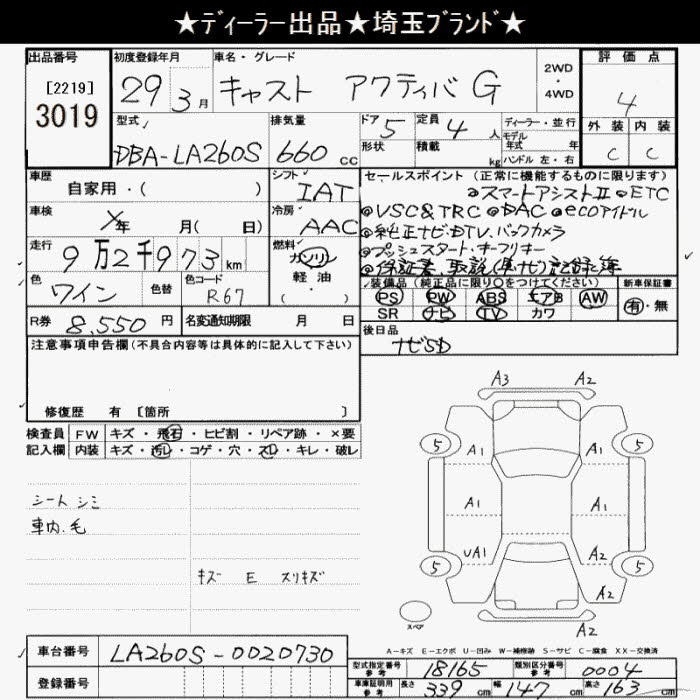 ★ディーラー出品★埼玉ブランド★
出品番号
[2219]
3019
初度登録年月
29年3月
車名・グレード
キャスト アクティバ G
2WD・4WD
評価点
4
外装 内装
C C
型式
DBA-LA260S
排気量
660 cc
ドア 5
形状
定員 4人
積載 kg
ディーラー・並行
モデル年式 年
ハンドル 左・右
車歴
自家用・( )
シフト
IAT
セールスポイント(正常に機能するものに限ります)
◎スマートアシストⅡ ◎ETC
◎VSC&TRC ◎DAC ◎ecoアイドル
◎純正ナビ・DTV、バックカメラ
◎プッシュスタート・キーフリー
◎保証書、取説(車、ナビ)記録簿
車検
年 月( 日)
冷房
AAC
走行
9万2千973km
燃料
ガソリン
軽油
・( )
色
ワイン
色替
色コード
R67
装備品(純正品に限り○をつけてください)
PS PW ABS エアB AW
SR ナビ TV カワ
新車保証書
有・無
R券 8,550円
名変通知期限 月 日
後日品
ナビSD
注意事項申告欄(不具合内容等は具体的に記入して下さい)
修復歴 有 [箇所 ]
検査員記入欄
FW キズ・飛石・ヒビ割・リペア跡・×要
内装 キズ・汚レ・コゲ・穴・スレ・キレ・破レ
シート シミ
車内、毛
キズ E スリキズ
A3 A2
5 5
A1 A1
A1 A1
UA1 A2
5 5
A2
A2
スペア
A-キズ E-エクボ U-凹み W-補修跡 S-サビ C-腐食 XX-交換済
車台番号 LA260S-0020730
登録番号
型式指定番号 参考 18165
類別区分番号 参考 0004
車庫証明用 参考 長さ 339 cm 幅 147 cm 高さ 163 cm